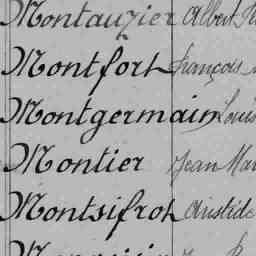 Montauzier Albert
Montfort François
Montgermain Louis
Montier Jean
Montsifrot Aristide